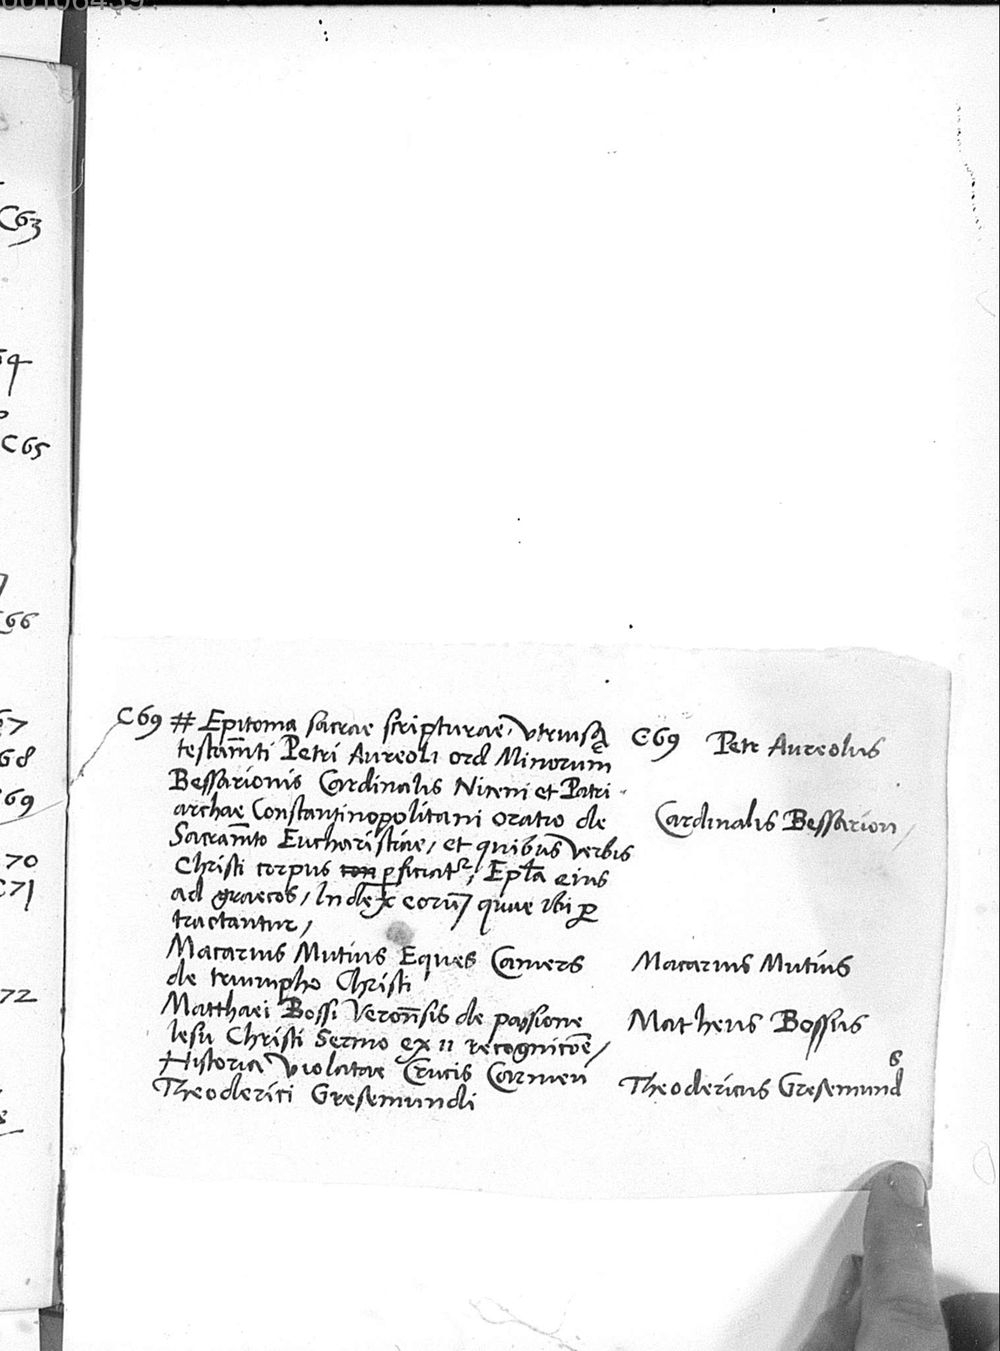 00106439
C63
C65
C66
67
68
69
70
C71
72
C69 # Epitoma sacrae scripturae, vtriusq̨
testam̄ti Petri Aureoli ord Minorum
Bessarionis Cardinalis Niceni et Patri
archae Constantinopolitani oratio de
Sacram̄to Eucharistiae, et quibus verbis
Christi corpus con ꝑficiatᷣ, Ep̄la eius
ad graecos, Index eorū quae ibi ꝑ
tractantur,
Macarius Mutius Eques Camers
de triumpho Christi
Matthaei Bossi Veron̄sis de passione
Iesu Christi Sermo ex 11 recognicōe,
Historia Violatae Crucis Carmen
Theoderici Gresemundi
C69 Petr Aureolus
Cardinalis Bessarion,
Macarius Mutius
Matheus Bossus
Theodericus Gresemundꝰ